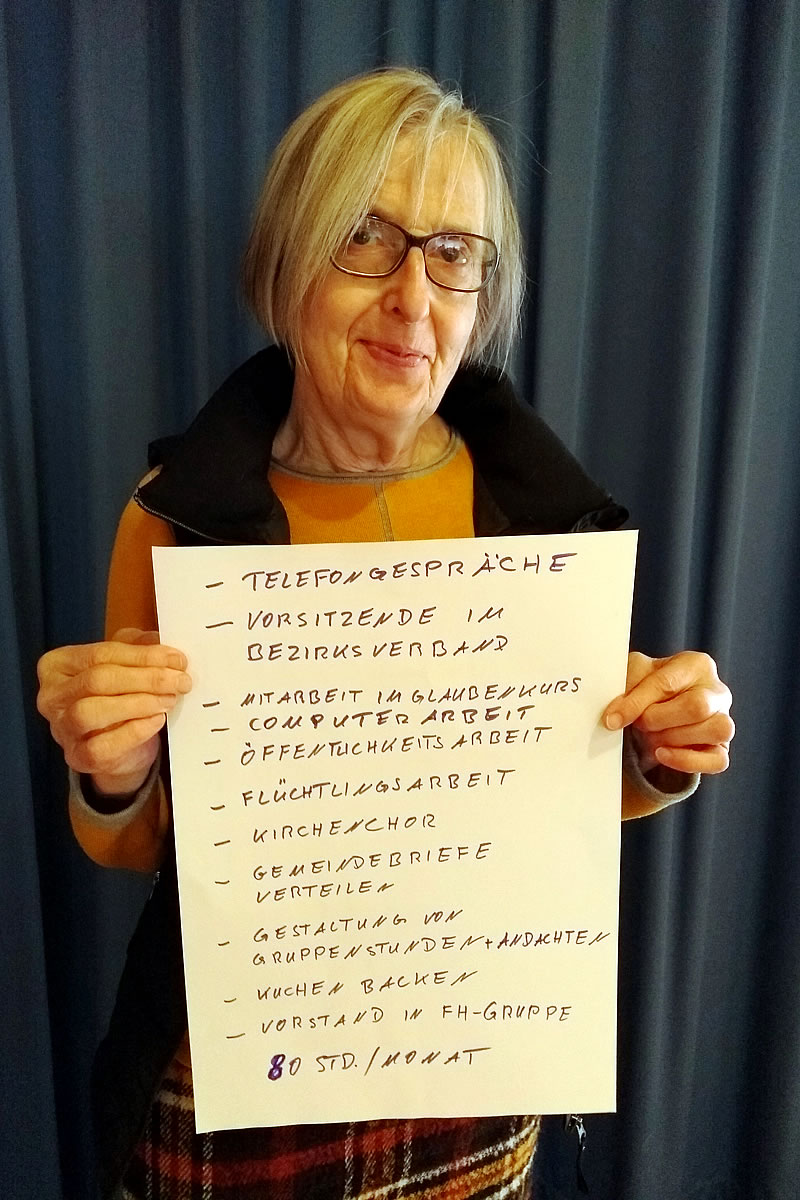 - TELEFONGESPRÄCHE
- VORSITZENDE IM
BEZIRKSVERBAND
- MITARBEIT IM GLAUBENKURS
- COMPUTERARBEIT
- ÖFFENTLICHKEITSARBEIT
- FLÜCHTLINGSARBEIT
- KIRCHENCHOR
- GEMEINDEBRIEFE
VERTEILEN
- GESTALTUNG VON
GRUPPENSTUNDEN + ANDACHTEN
- KUCHEN BACKEN
- VORSTAND IN FH-GRUPPE
80 STD./MONAT